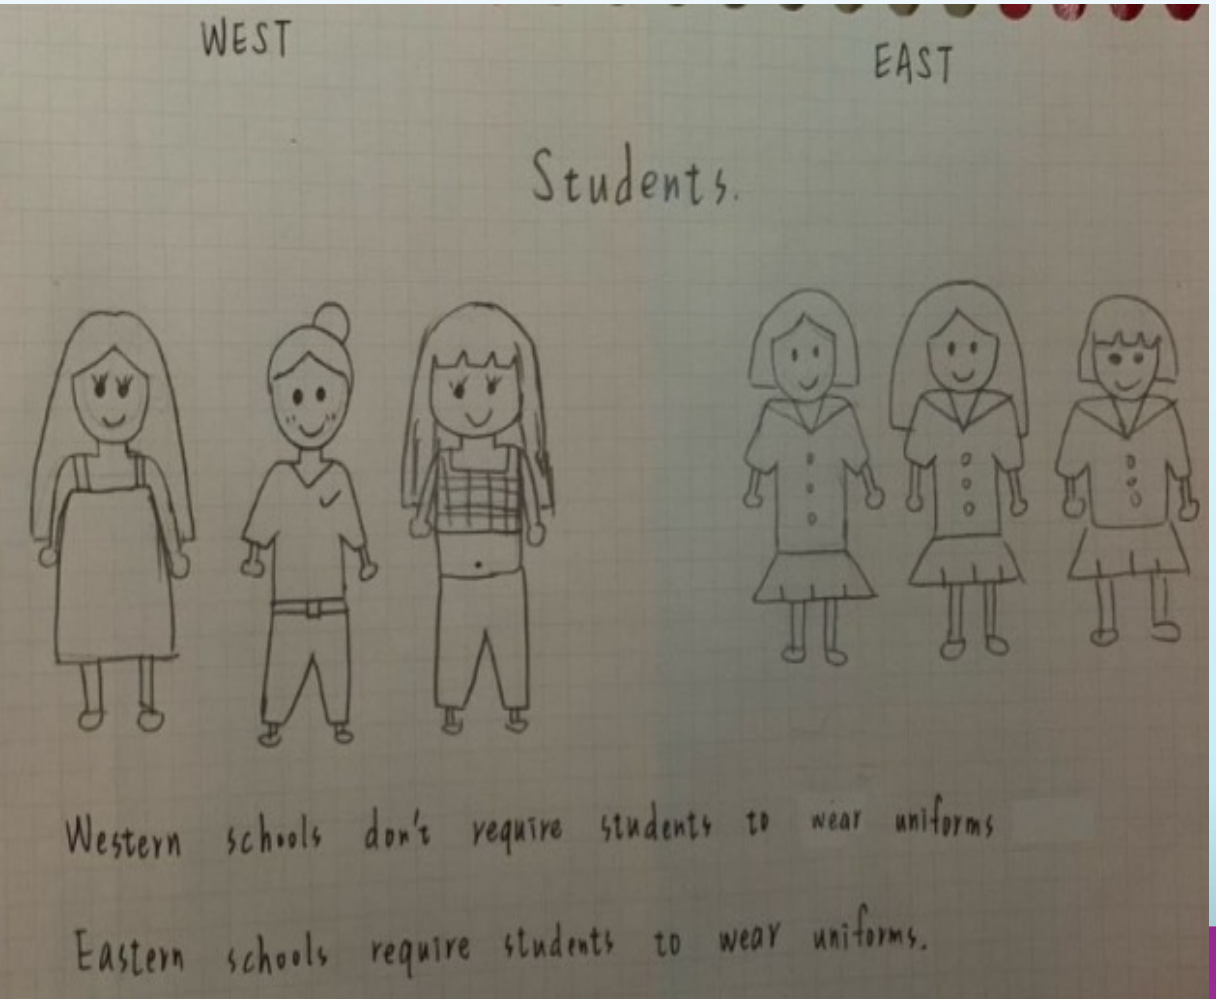 WEST
EAST
Students.
Western schools don't require students to wear uniforms
Eastern schools require students to wear uniforms.